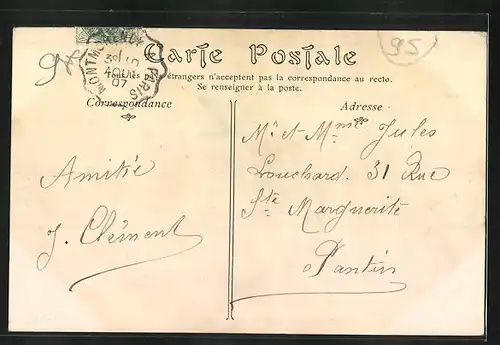 95
Carte Postale
MONTMORENCY A PARIS
30
AOUT
07
Tous les pays étrangers n'acceptent pas la correspondance au recto.
Se renseigner à la poste.
Correspondance
Adresse
Amitié
J. Clément
Mr et Mme Jules
Louchard. 31 Rue
Ste Marguerite
Pantin